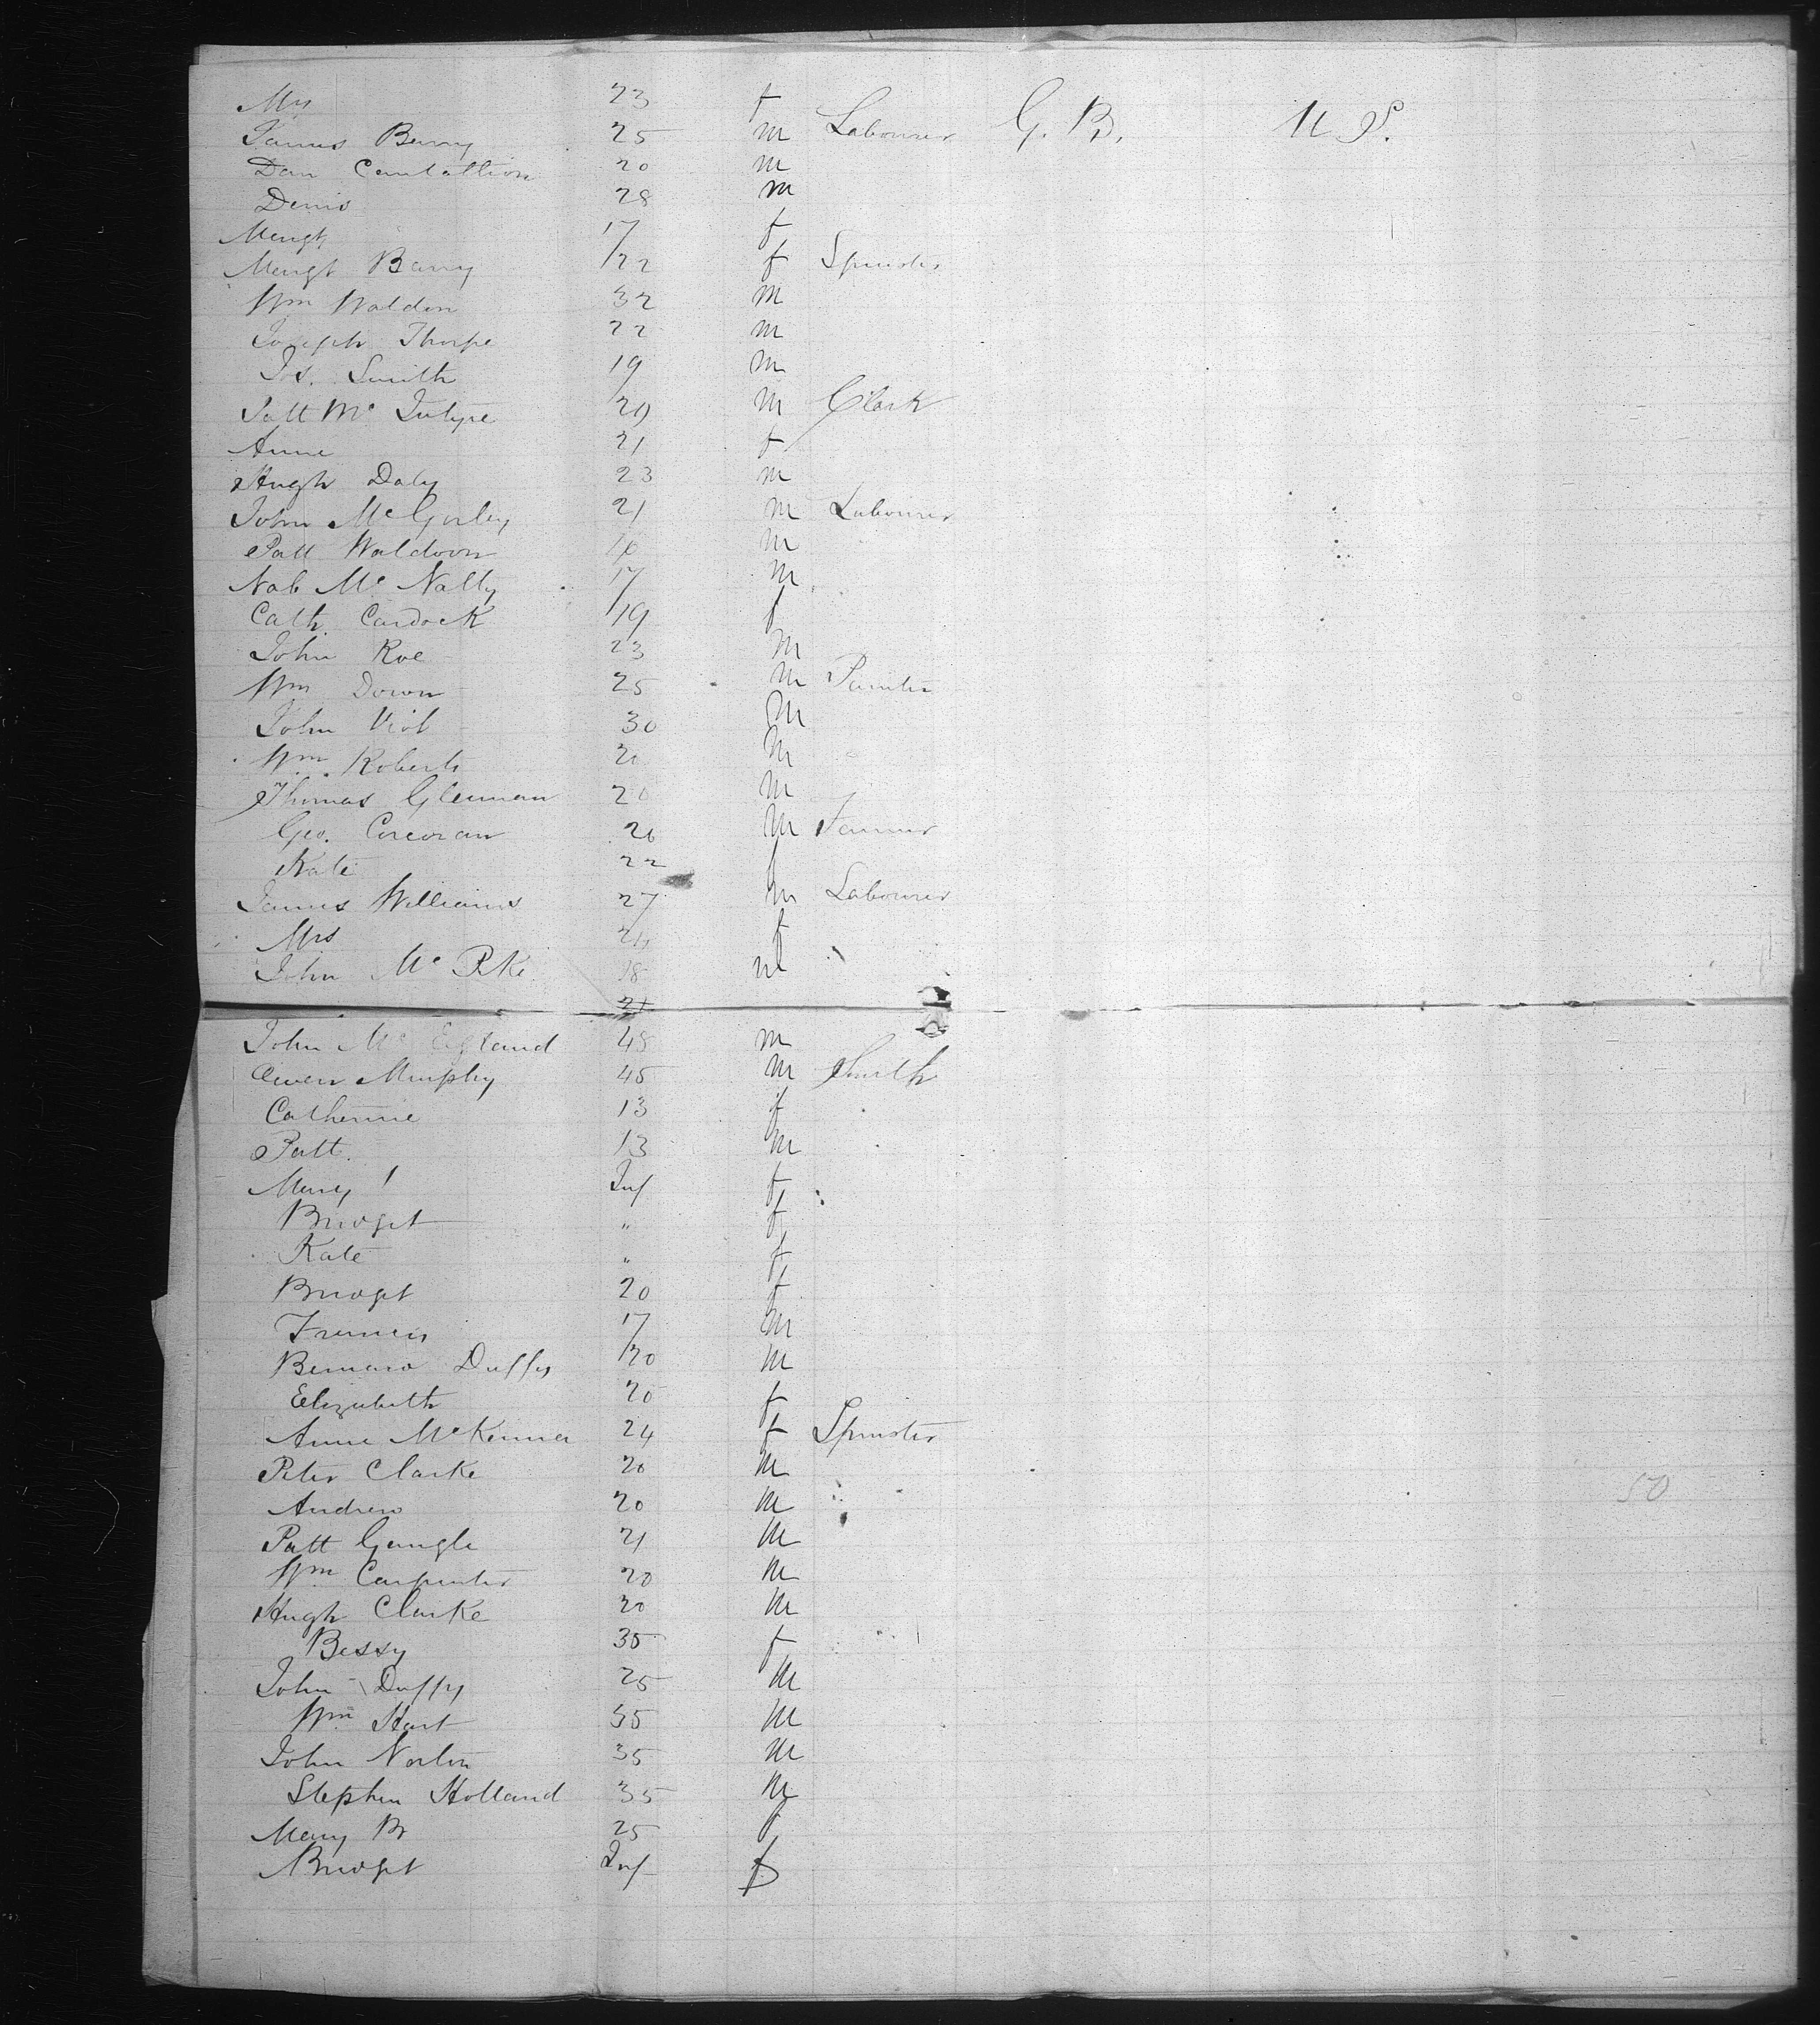 Mrs 23 f
James Barry 25 m Labourer G. B. U S.
Dan Cantattion 20 m
Denis 28 m
Margt 17 f
Margt Barry 22 f Spinster
Wm Waldon 32 m
Joseph Thorpe 22 m
Jos. Smith 19 m
Patt Mc Intyre 29 m Clark
Anne 21 f
Hugh Daly 23 m
John Mc Gorley 21 m Labourer
Patt Waldoon m
Nab Mc Nally 17 m
Cath Cardock 19 f
John Roe 23 m
Wm Down 25 m Painter
John 30 m
Wm Roberts m
Thomas Glennan 20 m
Geo. Corcoran 26 m
Kate 22 f
James Williams 27 m Labourer
Mrs f
John Mc Pike 18 m
21
John Mc 48 m
Owen Murphy 45 m Smith
Catherine 13 f
Patt. 13 m
Mary Inf f
Bridget " f
Kate " f
Bridget 20 f
Francis 17 m
Bernard Duffy 20 m
Elizabeth 20 f
Anne McKenna 24 f Spinster
Peter Clarke 20 m
50
Andrew 20 m
Patt Gangle 21 m
Wm Carpenter 20 m
Hugh Clarke 30 m
Bessy 35 f
John Duffy 25 m
Wm Hart 35 m
John Norton 35 m
Stephen Holland 35 m
Mary Br 25 f
Bridget Inf f